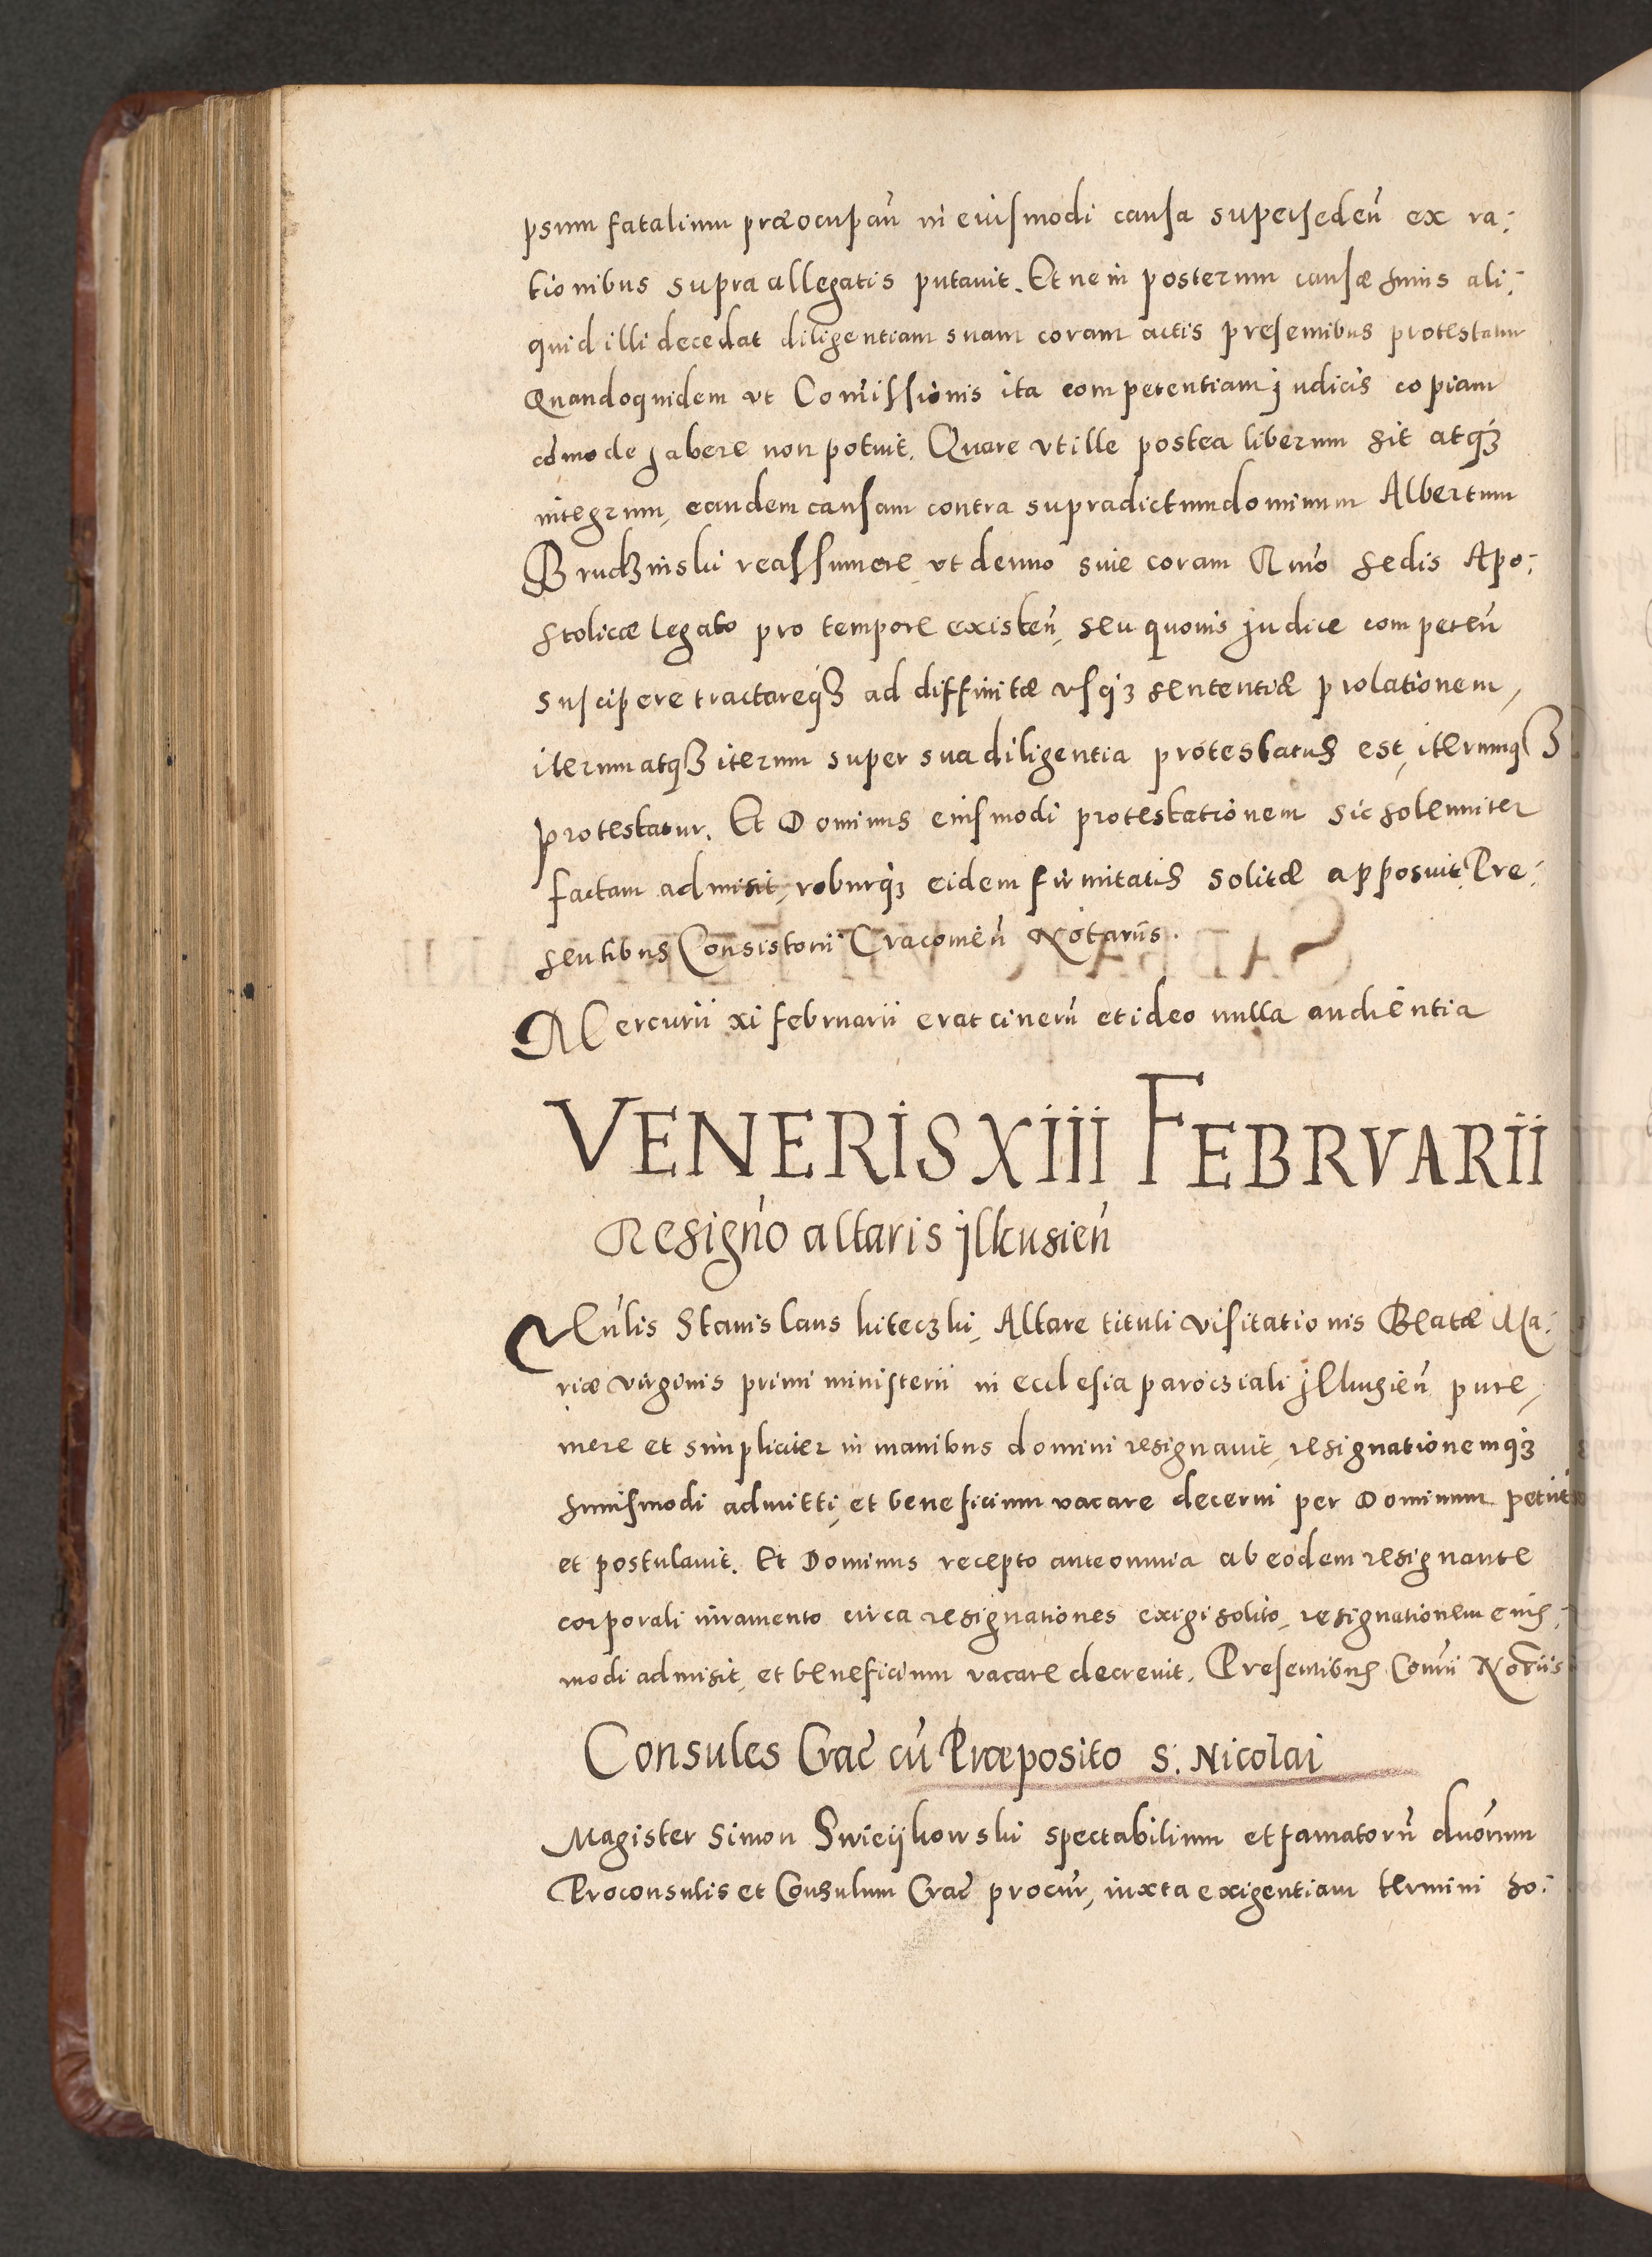 psum fatalium præocupañ in eiusmodi causa supersedeñ ex ra-
tionibus supra allegatis putauit. Et ne in posterum causæ huius ali-
quid illi decedat diligentiam suam coram actis presentibus protestatur
Quandoquidem vt Com̃issionis ita competentiam judicis copiam
cõmode habere non potuit. Quare vt ille postea liberum sit atq3
integrum, eandem causam contra supradictum dominum Albertum
Brudzinski reassumere, vt denuo siue coram R mõ Sedis Apo-
stolicæ legato pro tempore existeñ, seu quouis judice competeñ
suscipere tractareq3 ad diffinitæ vsq3 sententiæ prolationem,
iterum atq3 iterum super sua diligentia protestatus est, iterumq3
protestatur. Et Dominus eiusmodi protestationem sic solenniter
factam admisit, roburq3 eidem firmitatis solitæ apposuit. Pre-
sentibus Consistorii Cracouieñ Notariis.
Mercurii xi februarii erat cinerũ et ideo nulla audientia
VENERIS XIII FEBRVARII
Resigño altaris jlkusieñ
Stanislaus kiteczki, Altare tituli visitationis Beatæ Ma-
riæ virginis primi ministerii in ecclesia parochiali jlkusieñ pure,
mere et simpliciter in manibus domini resignauit, resignationemq3
huiusmodi admitti, et beneficium vacare decerni per Dominum petiit
et postulauit. Et Dominus recepto ante omnia ab eodem resignante
corporali iuramento circa resignationes exigi solito, resignationem eius-
modi admisit, et beneficium vacare decreuit. Presentibus Cons̃rii Notr̃iis
Consules Crac̃ cũ Præposito S. Nicolai
Magister Simon Swieijkowski spectabilium et famatorũ duõrum
Proconsulis et Consulum Crac̃ procur̃, iuxta exigentiam termini ho-